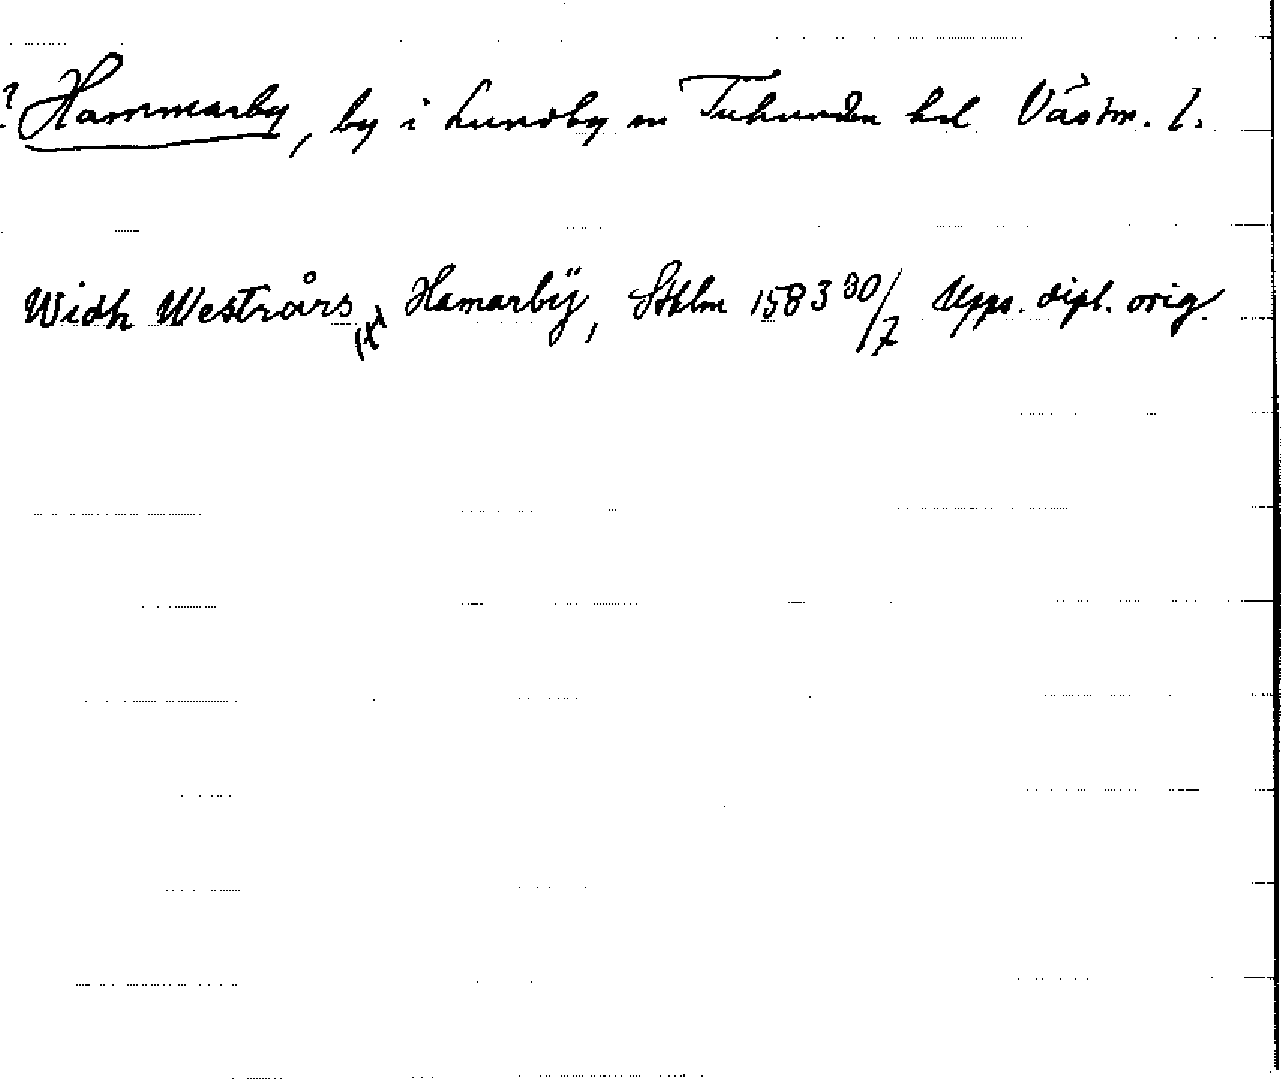 ? Hammarby, by i Lundby sn Tuhundra hd Västm. l.
Widh Westrårs Hamarbÿ, Sthlm 1583 30/7 Upps. dipl. orig.